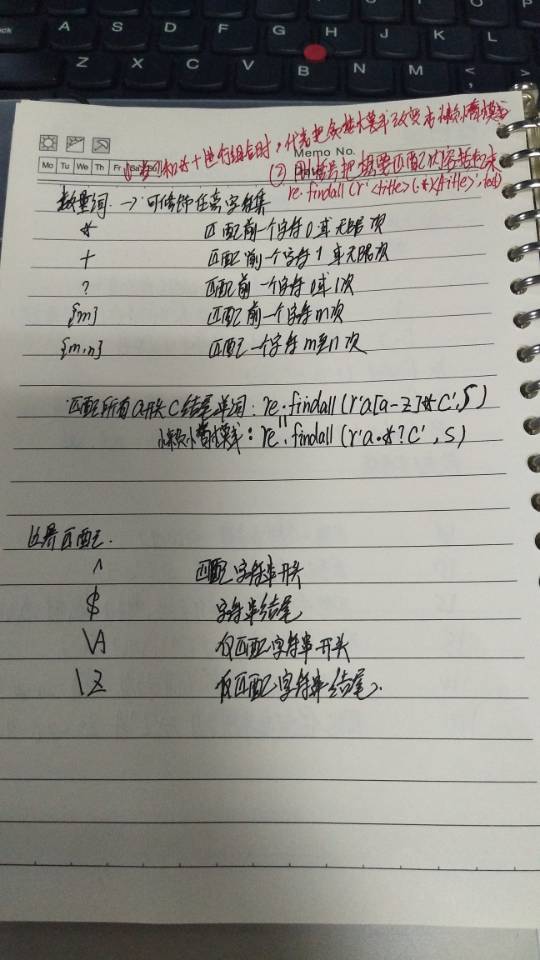 ① 当?和*+进行组合时,代表把贪婪模式改变为非贪婪模式
Memo No.
Mo Tu We Th Fr Sa Su
② 用括号把想要匹配的内容括起来
re.findall(r'<title>(.*)</title>', text)
数量词 → 可修饰任意字符集
* 匹配前一个字符0或无限次
+ 匹配前一个字符1或无限次
? 匹配前一个字符0或1次
{m} 匹配前一个字符m次
{m,n} 匹配一个字符m至n次
匹配所有a开头C结尾单词: re.findall(r'a[a-z]*C',S)
非贪婪模式: re.findall(r'a.*?C',S)
边界匹配:
^ 匹配字符串开头
$ 字符串结尾
\A 仅匹配字符串开头
\Z 仅匹配字符串结尾.